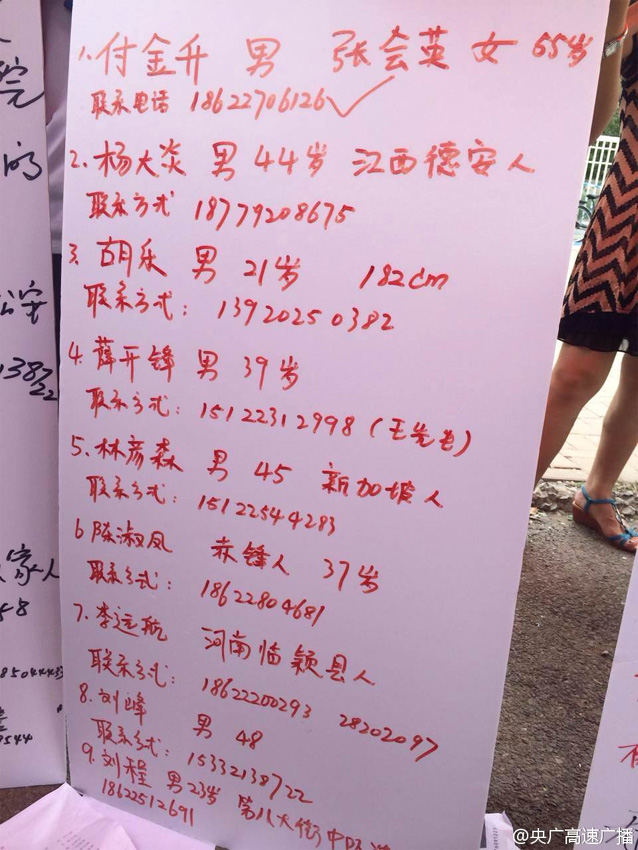 1.付金升 男 张会英 女 65岁
联系电话 18622706126✓
2.杨大炎 男 44岁 江西德安人
联系方式 18779208675
3.胡乐 男 21岁 182cm
联系方式：13920250382
4.薛开锋 男 39岁
联系方式：15122312998（王先生）
5.林彦森 男 45 新加坡人
联系方式：15122544283
6 陈淑凤 赤锋人 37岁
联系方式：18622804681
7.李远航 河南临颖县人
联系方式：18622200293 28202097
8.刘峰 男 48
联系方式：15332138722
9.刘程 男23岁 第八大街中
18622512691
的
公安
家人
@央广高速广播